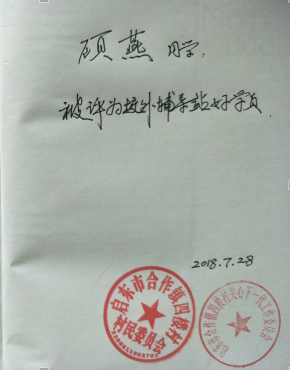 顾燕 同学.
被评为校外辅导站好学员.
2018.7.28
启东市合作镇四楼村
村民委员会
启东市合作镇四楼村关心下一代工作委员会